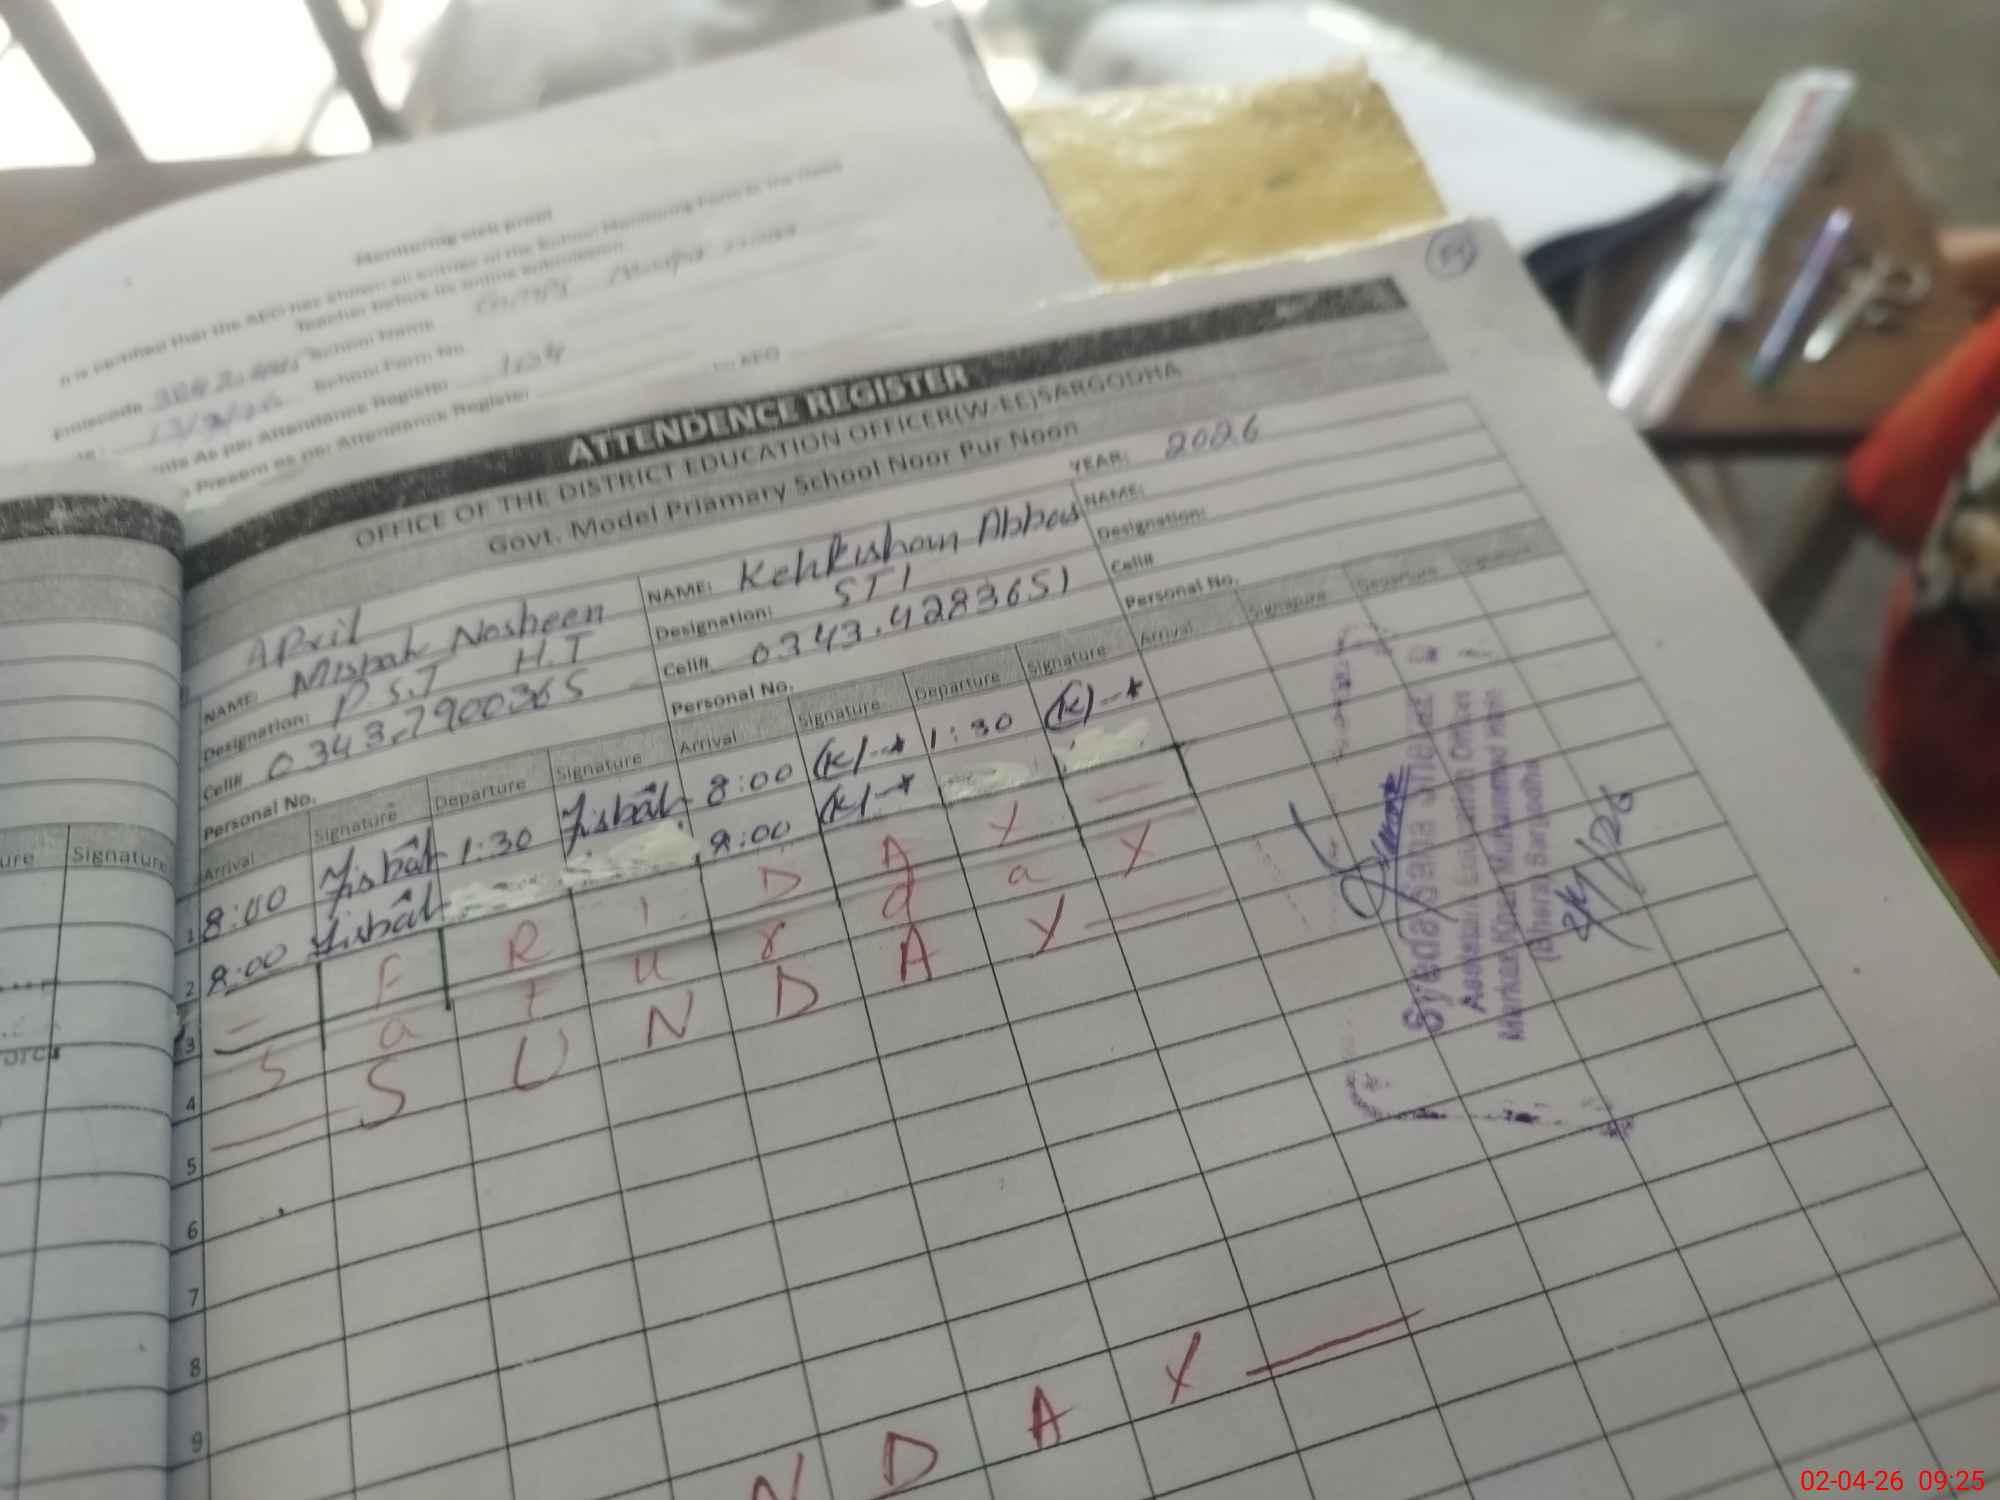 Monitoring visit proof
It is certified that the AEO has shown all entries of the School Monitoring Form to the Head
Teacher before its online submission.
Emiscode School Name
13/3/26 School Form No.
As per Attendance Register 104
Present as per Attendance Register
AEO
ATTENDENCE REGISTER
OFFICE OF THE DISTRICT EDUCATION OFFICER(W-EE)SARGODHA
Govt. Model Priamary School Noor Pur Noon
YEAR: 2026
APril
NAME: Misbah Nosheen NAME: Kehkishan Abbas NAME:
Designation: P.S.T H.T Designation: STI Designation:
Cell# 0343.7900365 Cell#. 0343.4283651 Cell#
Personal No. Personal No. Personal No.
Signature Arrival Signature Departure Signature Arrival Signature Departure Signature Arrival Signature Departure Signature
1 8:00 Misbah 1:30 Misbah 8:00 (K) 1:30 (K)
2 8:00 Misbah 8:00 (K)
3 = F R I D A Y =
4 S a t u r d a Y
5 S U N D A Y
6
7
8
9
N D A Y
Syeda Sana
Assistant Education Officer
Markaz
2/4/26
02-04-26 09:25